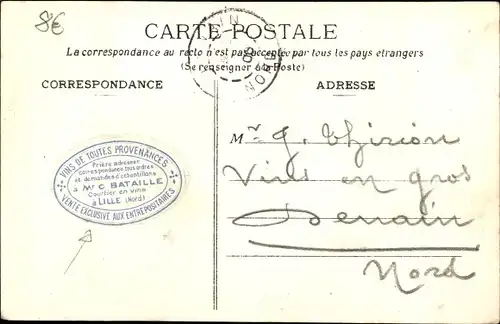 8€
CARTE POSTALE
La correspondance au recto n'est pas acceptée par tous les pays etrangers
(Se renseigner à la Poste)
CORRESPONDANCE
ADRESSE
NORD
VINS DE TOUTES PROVENANCES
Prière adresser
correspondance, tous ordres
et demandes d'échantillons
à Mr C. BATAILLE
Courtier en vins
à LILLE (Nord)
VENTE EXCLUSIVE AUX ENTREPOSITAIRES
Mr J. Thirion
Vins en gros
Denain
Nord